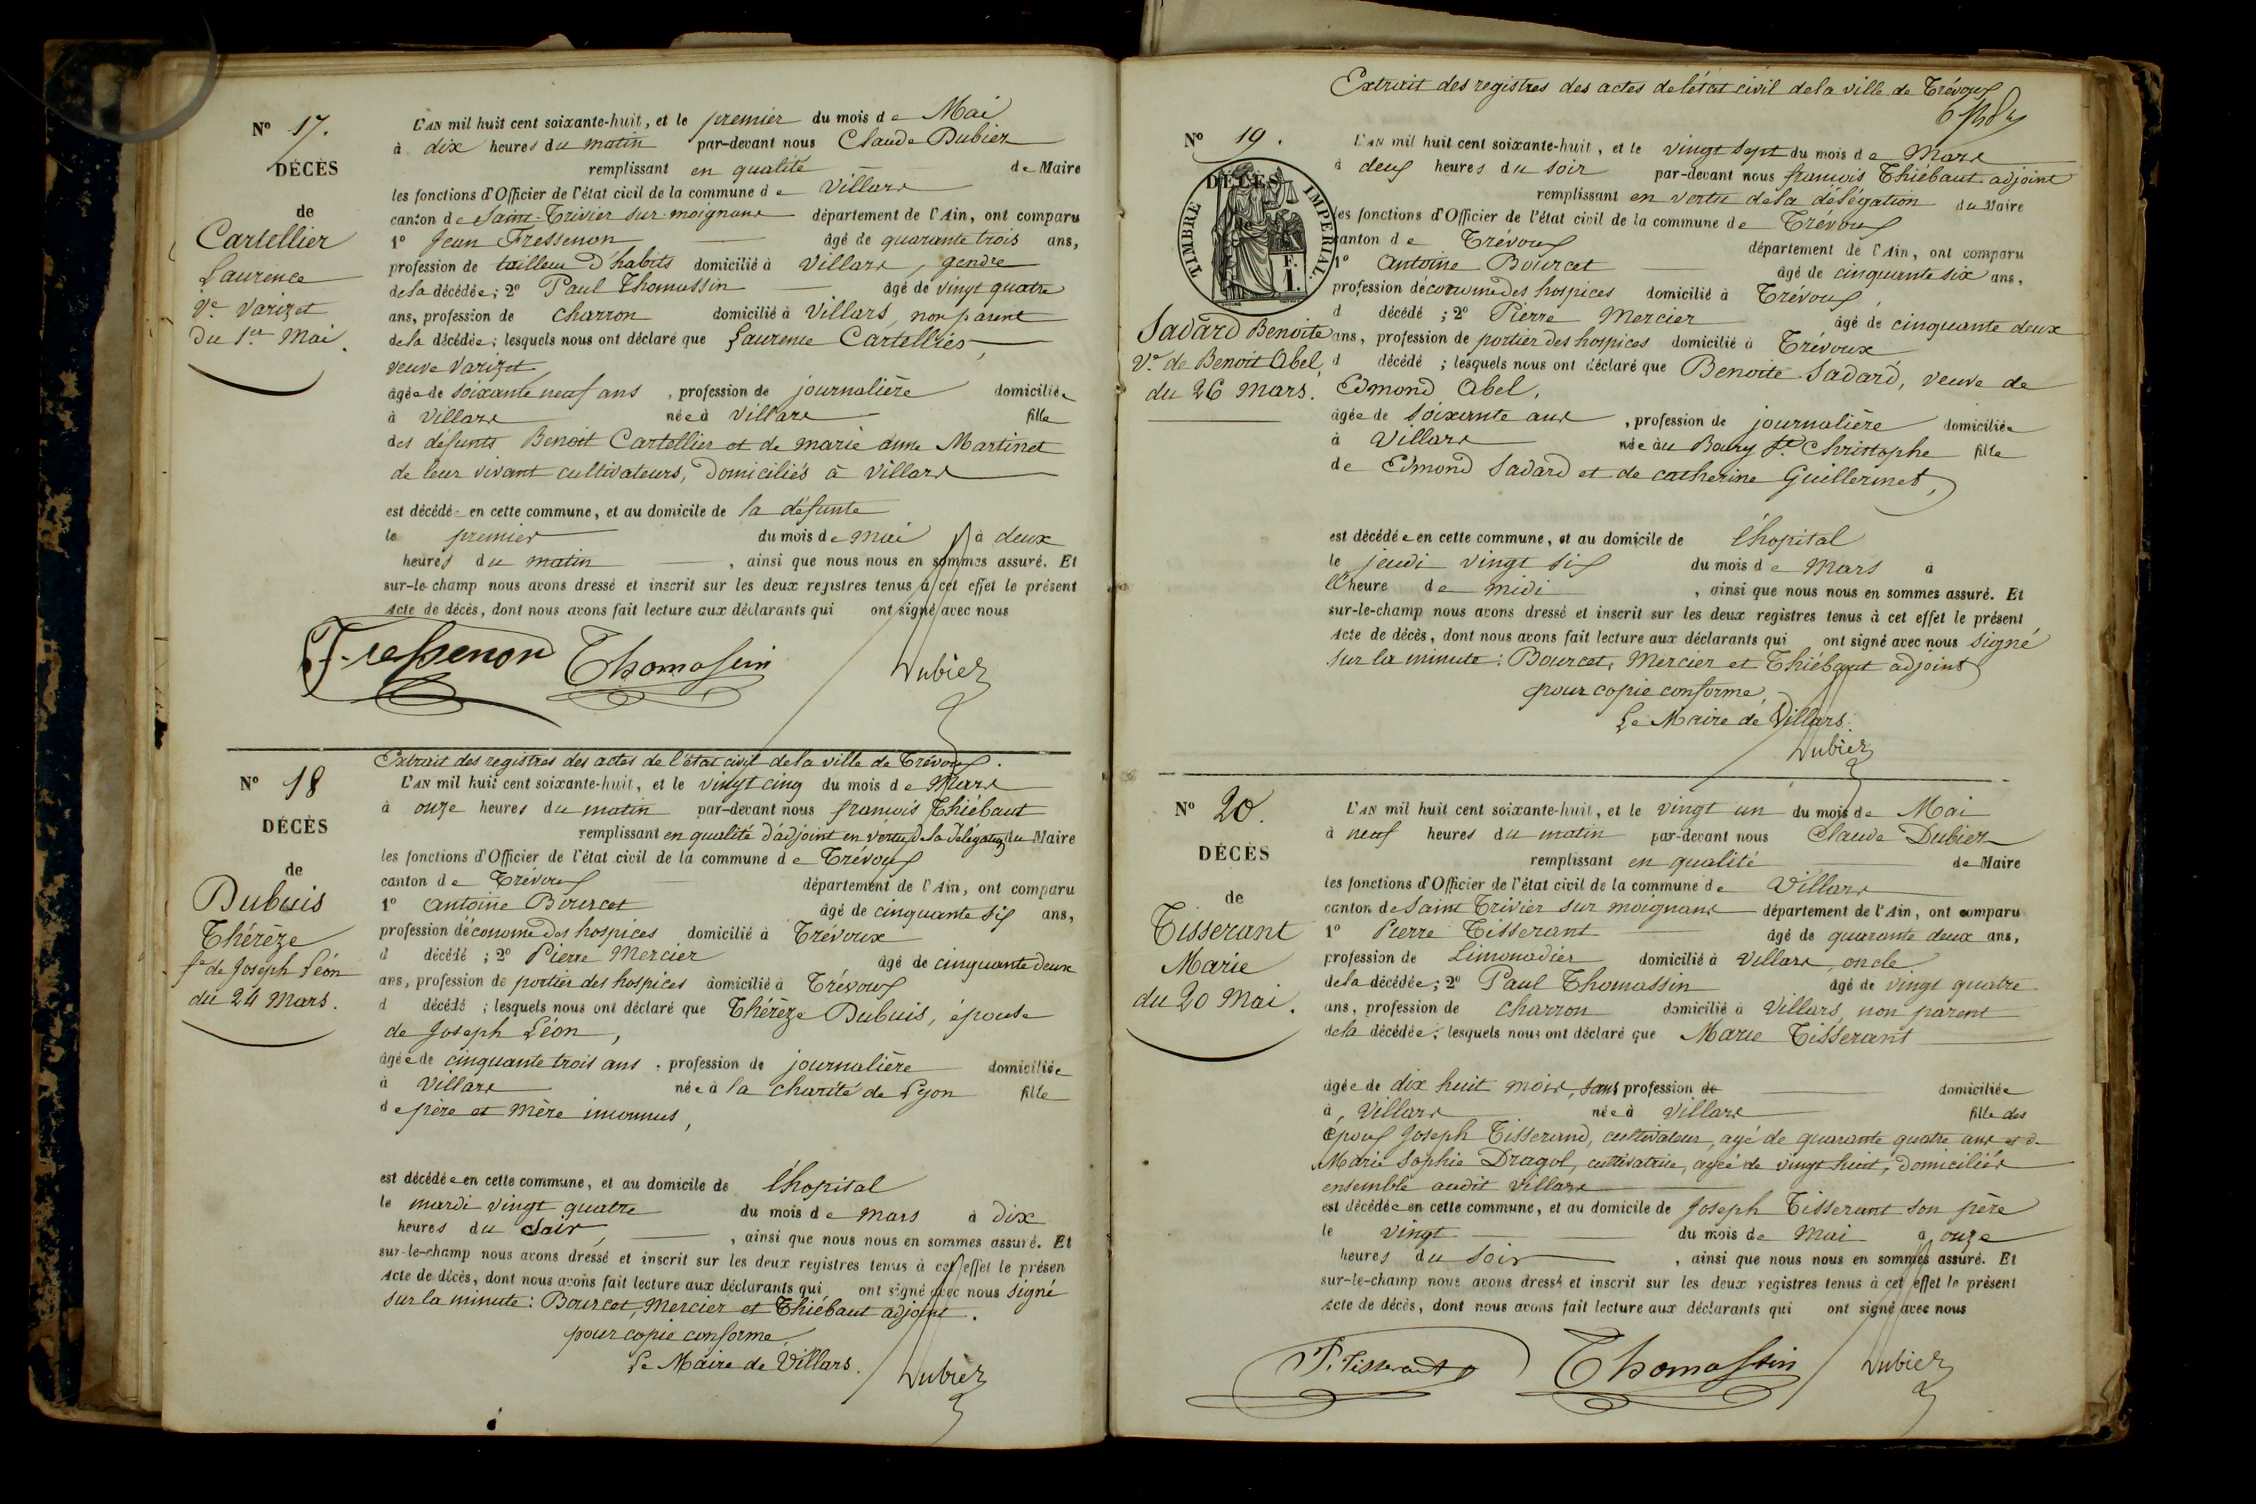 Nº 17.
DÉCÈS
de
Cartellier
Laurence
Vᵉ Varizet
du 1er Mai.
L'AN mil huit cent soixante-huit, et le premier du mois de Mai
à dix heures du matin par-devant nous Claude Dubiez
remplissant en qualité de Maire
les fonctions d'Officier de l'état civil de la commune de Villars
canton de Saint-Trivier sur moignans département de l'Ain, ont comparu
1º Jean Fressenon âgé de quarante trois ans,
profession de tailleur d'habits domicilié à Villars, gendre
de la décédée ; 2º Paul Thomassin âgé de vingt quatre
ans, profession de charron domicilié à Villars, non parent
de la décédée ; lesquels nous ont déclaré que Laurence Cartellier,
veuve Varizet
âgée de soixante neuf ans, profession de journalière domiciliée
à Villars née à Villars fille
des défunts Benoit Cartellier et de marie anne Martinet
de leur vivant cultivateurs, domiciliés à Villars
est décédée en cette commune, et au domicile de la défunte
le premier du mois de mai à deux
heures du matin, ainsi que nous nous en sommes assuré. Et
sur-le-champ nous avons dressé et inscrit sur les deux registres tenus à cet effet le présent
Acte de décès, dont nous avons fait lecture aux déclarants qui ont signé avec nous
Fressenon Thomassin Dubiez
Nº 18
DÉCÈS
de
Dubuis
Thérèze
fᵉ de Joseph Léon
du 24 Mars.
Extrait des registres des actes de l'état civil de la ville de Trévoux.
L'AN mil huit cent soixante-huit, et le vingt cinq du mois de Mars
à onze heures du matin par-devant nous françois Thiébaut
remplissant en qualité d'adjoint en vertu de la délégation du Maire
les fonctions d'Officier de l'état civil de la commune de Trévoux
canton de Trévoux département de l'Ain, ont comparu
1º Antoine Bourcet âgé de cinquante six ans,
profession d'économe des hospices domicilié à Trévoux
d décédé ; 2º Pierre Mercier âgé de cinquante deux
ans, profession de portier des hospices domicilié à Trévoux
d décédé ; lesquels nous ont déclaré que Thérèze Dubuis, épouse
de Joseph Léon,
âgée de cinquante trois ans, profession de journalière domiciliée
à Villars née à la charité de Lyon fille
de père et mère inconnus,
est décédée en cette commune, et au domicile de l'hopital
le mardi vingt quatre du mois de mars à dix
heures du soir, ainsi que nous nous en sommes assuré. Et
sur-le-champ nous avons dressé et inscrit sur les deux registres tenus à cet effet le présen
Acte de décès, dont nous avons fait lecture aux déclarants qui ont signé avec nous signé
sur la minute : Bourcet, Mercier et Thiébaut adjoint.
pour copie conforme,
Le Maire de Villars. Dubiez
Extrait des registres des actes de l'état civil de la ville de Trévoux
Nº 19.
DÉCÈS
TIMBRE IMPÉRIAL.
F.
1.
Sadard Benoite
Vᵉ de Benoit Abel,
du 26 Mars.
L'AN mil huit cent soixante-huit, et le vingt sept du mois de Mars
à deux heures du soir par-devant nous françois Thiébaut adjoint
remplissant en vertu de la délégation du Maire
les fonctions d'Officier de l'état civil de la commune de Trévoux
canton de Trévoux département de l'Ain, ont comparu
1º Antoine Bourcet âgé de cinquante six ans,
profession d'économe des hospices domicilié à Trévoux,
d décédé ; 2º Pierre Mercier âgé de cinquante deux
ans, profession de portier des hospices domicilié à Trévoux
d décédé ; lesquels nous ont déclaré que Benoite Sadard, veuve de
Edmond Abel,
âgée de soixante ans, profession de journalière domiciliée
à Villars née au Bourg St. Christophe fille
de Edmond Sadard et de catherine Guillermet,
est décédée en cette commune, et au domicile de l'hopital
le jeudi vingt six du mois de Mars à
l'heure de midi, ainsi que nous nous en sommes assuré. Et
sur-le-champ nous avons dressé et inscrit sur les deux registres tenus à cet effet le présent
Acte de décès, dont nous avons fait lecture aux déclarants qui ont signé avec nous signé
sur la minute : Bourcet, Mercier et Thiébaut adjoint
pour copie conforme,
Le Maire de Villars.
Dubiez
Nº 20.
DÉCÈS
de
Tisserant
Marie
du 20 Mai.
L'AN mil huit cent soixante-huit, et le vingt un du mois de Mai
à neuf heures du matin par-devant nous Claude Dubiez
remplissant en qualité de Maire
les fonctions d'Officier de l'état civil de la commune de Villars
canton de Saint Trivier sur moignans département de l'Ain, ont comparu
1º Pierre Tisserant âgé de quarante deux ans,
profession de Limonadier domicilié à Villars, oncle
de la décédée ; 2º Paul Thomassin âgé de vingt quatre
ans, profession de charron domicilié à Villars, non parent
de la décédée ; lesquels nous ont déclaré que Marie Tisserant
âgée de dix huit mois, sans profession de domiciliée
à Villars née à Villars fille des
époux Joseph Tisserand, cultivateur, agé de quarante quatre ans et de
Marie Sophie Dragol, cultivatrice, agée de vingt huit, domiciliés
ensemble audit Villars
est décédée en cette commune, et au domicile de Joseph Tisserant son père
le vingt du mois de Mai à onze
heures du soir, ainsi que nous nous en sommes assuré. Et
sur-le-champ nous avons dressé et inscrit sur les deux registres tenus à cet effet le présent
Acte de décès, dont nous avons fait lecture aux déclarants qui ont signé avec nous
P. Tisserant Thomassin Dubiez